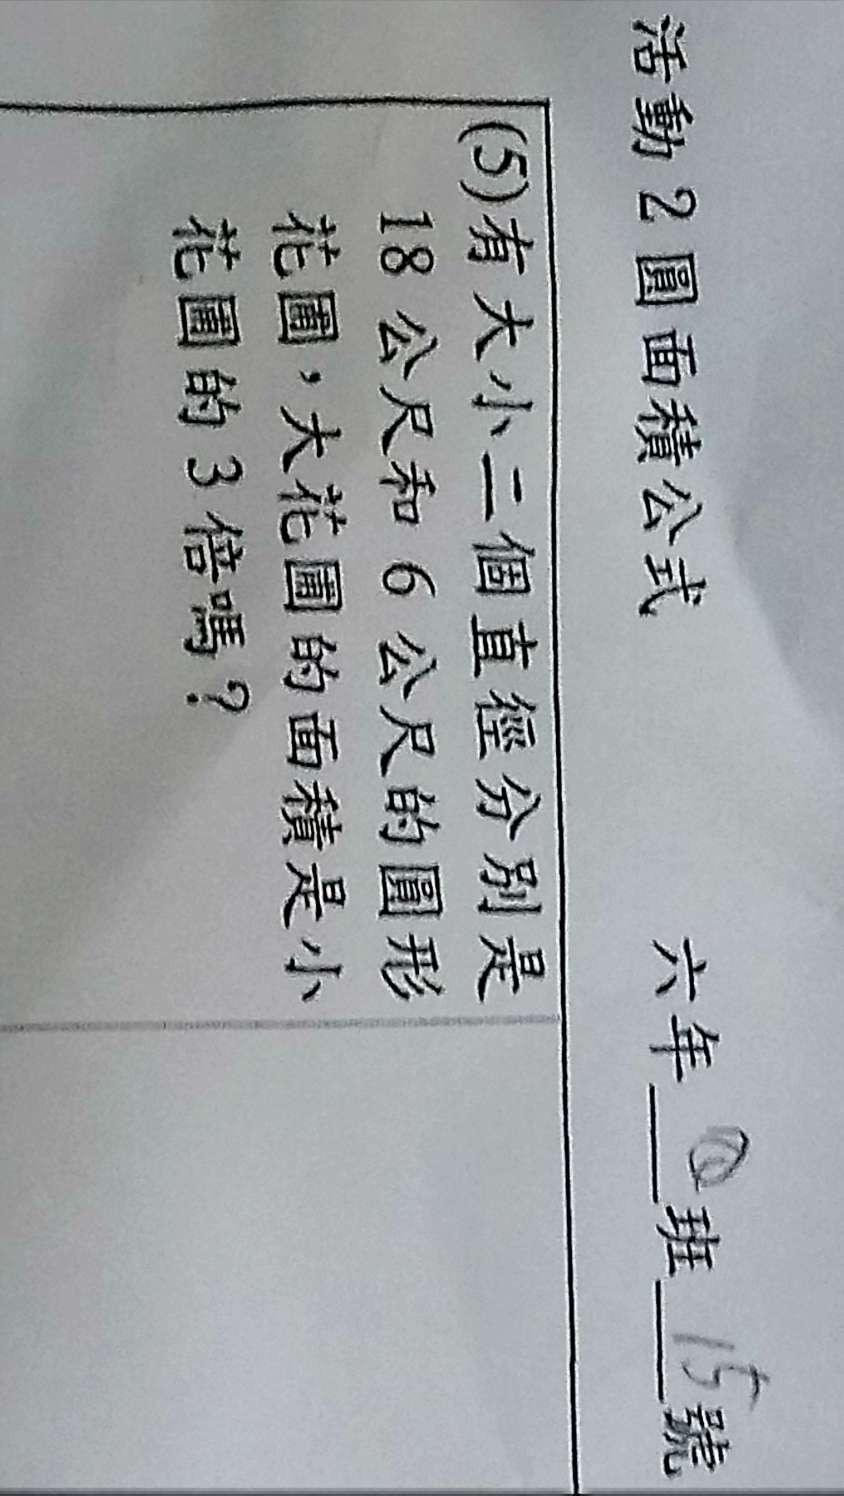 活動 2 圓面積公式 六年___班 15 號
(5)有大小二個直徑分別是
18 公尺和 6 公尺的圓形
花圃，大花圃的面積是小
花圃的 3 倍嗎？